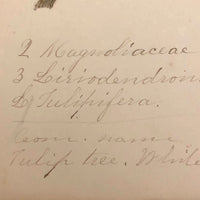 2 Magnoliaceae
3 Liriodendron
L Tulipifera.
Com. name
Tulip tree. White